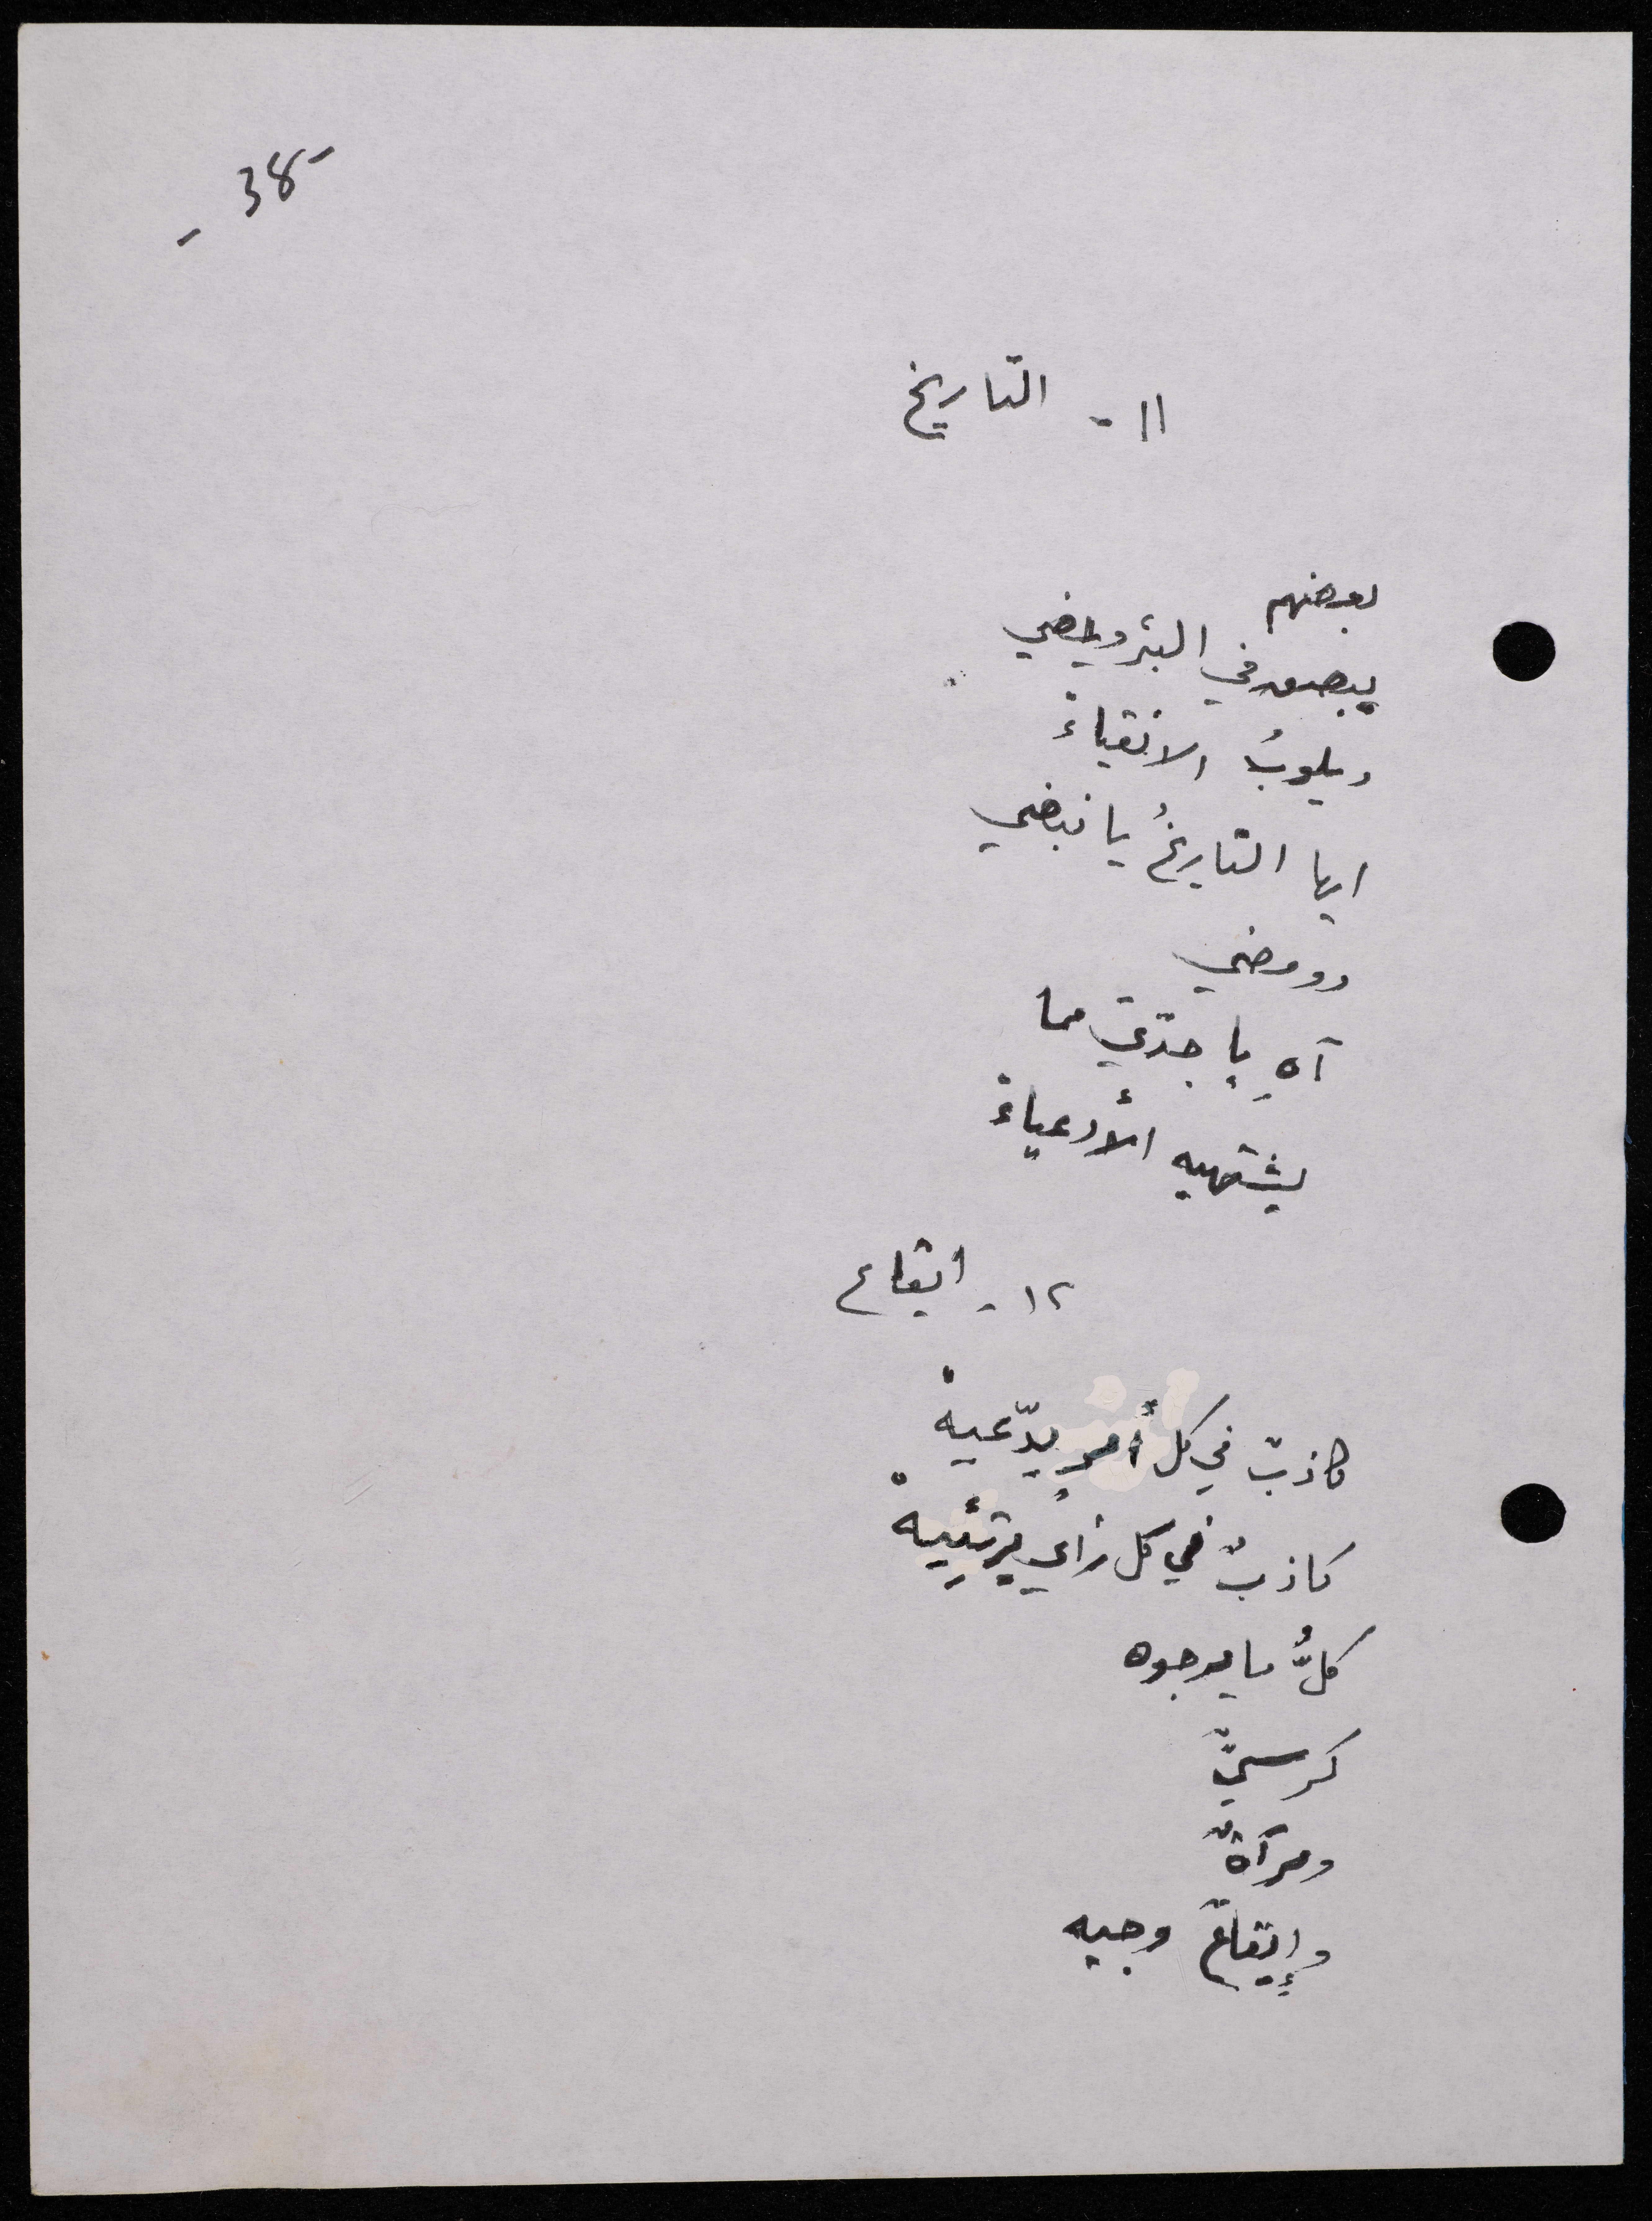 - 38 -
١١ - التاريخ
بعضهم
يبصق في البئر ويمضي
ويلوبُ الانقياءْ
ايها التاريخُ يا نبضي
وومضي
آهِ يا جدّتي مما
يشتهيه الأدعياءْ
١٢ - ايقاع
كاذبٌ في كل أمرٍ يدّعيهْ
كاذبٌ في كل رأيٍ يرتئيهْ
كلُّ ما يرجوه
كرسيٌّ
ومرآةٌ
وإيقاعٌ وجيه